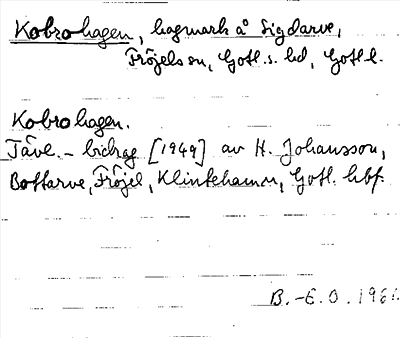 Kobrohagen, hagmark å Sigdarve,
Fröjels sn, Gotl. s. hd, Gotl. l.
Kobrohagen.
Tävl.-bidrag [1949] av H. Johansson,
Bottarve, Fröjel, Klintehamn, Gotl. hbf.
B.-E.O. 1961.